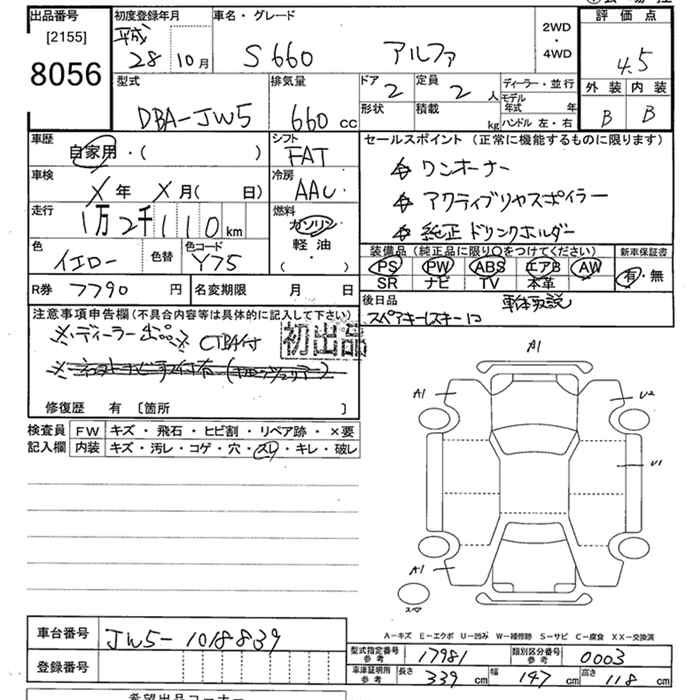 出品番号
[2155]
8056
初度登録年月
平成
28 10月
車名・グレード
S660 アルファ
2WD
・
4WD
評価点
4.5
外装 内装
B B
型式
DBA-JW5
排気量
660 cc
ドア
2
定員
2 人
形状
積載
kg
ディーラー・並行
モデル年式 年
ハンドル 左・右
車歴
自家用・( )
シフト
FAT
セールスポイント(正常に機能するものに限ります)
ワンオーナー
アクティブリヤスポイラー
純正ドリンクホルダー
車検
X年 X月( 日)
冷房
AAC
走行
1万2千110km
燃料
ガソリン
軽油
( ・ )
色
イエロー
色替
色コード
Y75
装備品(純正品に限り○をつけてください)
PS PW ABS エアB AW
SR ナビ TV 本革
新車保証書
有・無
R券 7790円
名変期限 月 日
後日品
スペアキー1スキー1コ
注意事項申告欄(不具合内容等は具体的に記入して下さい)
※ディーラー出品※ CTBA付
初出品
修復歴 有 〔箇所 〕
検査員
記入欄
FW キズ・飛石・ヒビ割・リペア跡・×要
内装 キズ・汚レ・コゲ・穴・スレ・キレ・破レ
A1
A1
U2
U1
A1
スペア
A-キズ E-エクボ U-凹み W-補修跡 S-サビ C-腐食 XX-交換済
車台番号 JW5-1018839
登録番号
型式指定番号
参考
17981
類別区分番号
参考
0003
車庫証明用
参考
長さ 339 cm 幅 147 cm 高さ 118 cm
希望出品コーナー